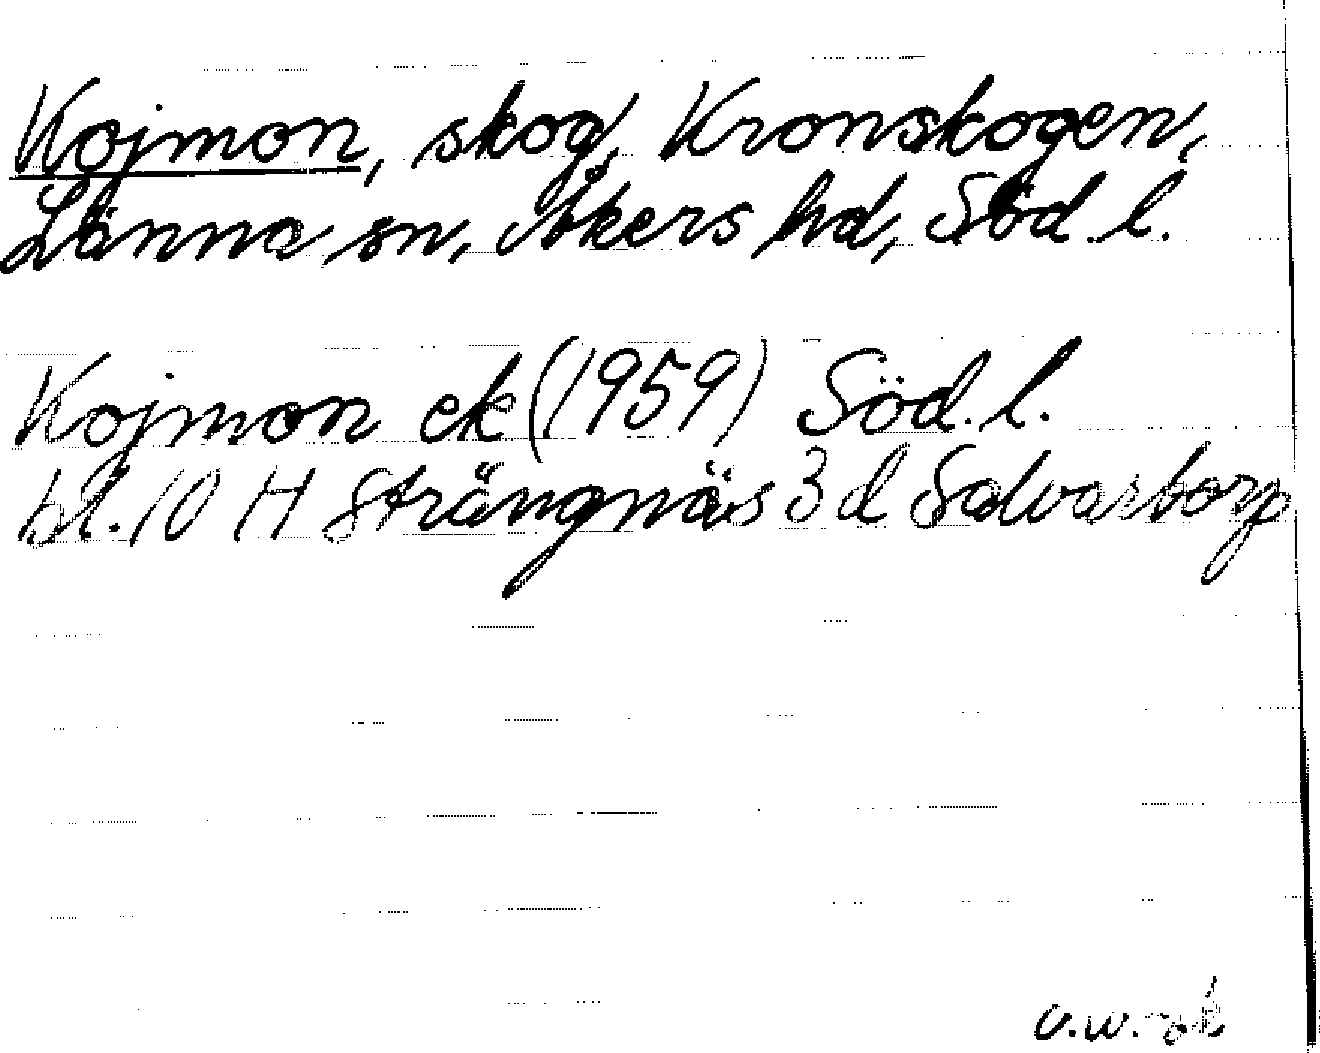 Kojmon, skog, Kronskogen,
Länna sn, Åkers hd, Söd. l.
Kojmon ek (1959) Söd. l.
bl. 10 H Strängnäs 3 d Salvartorp